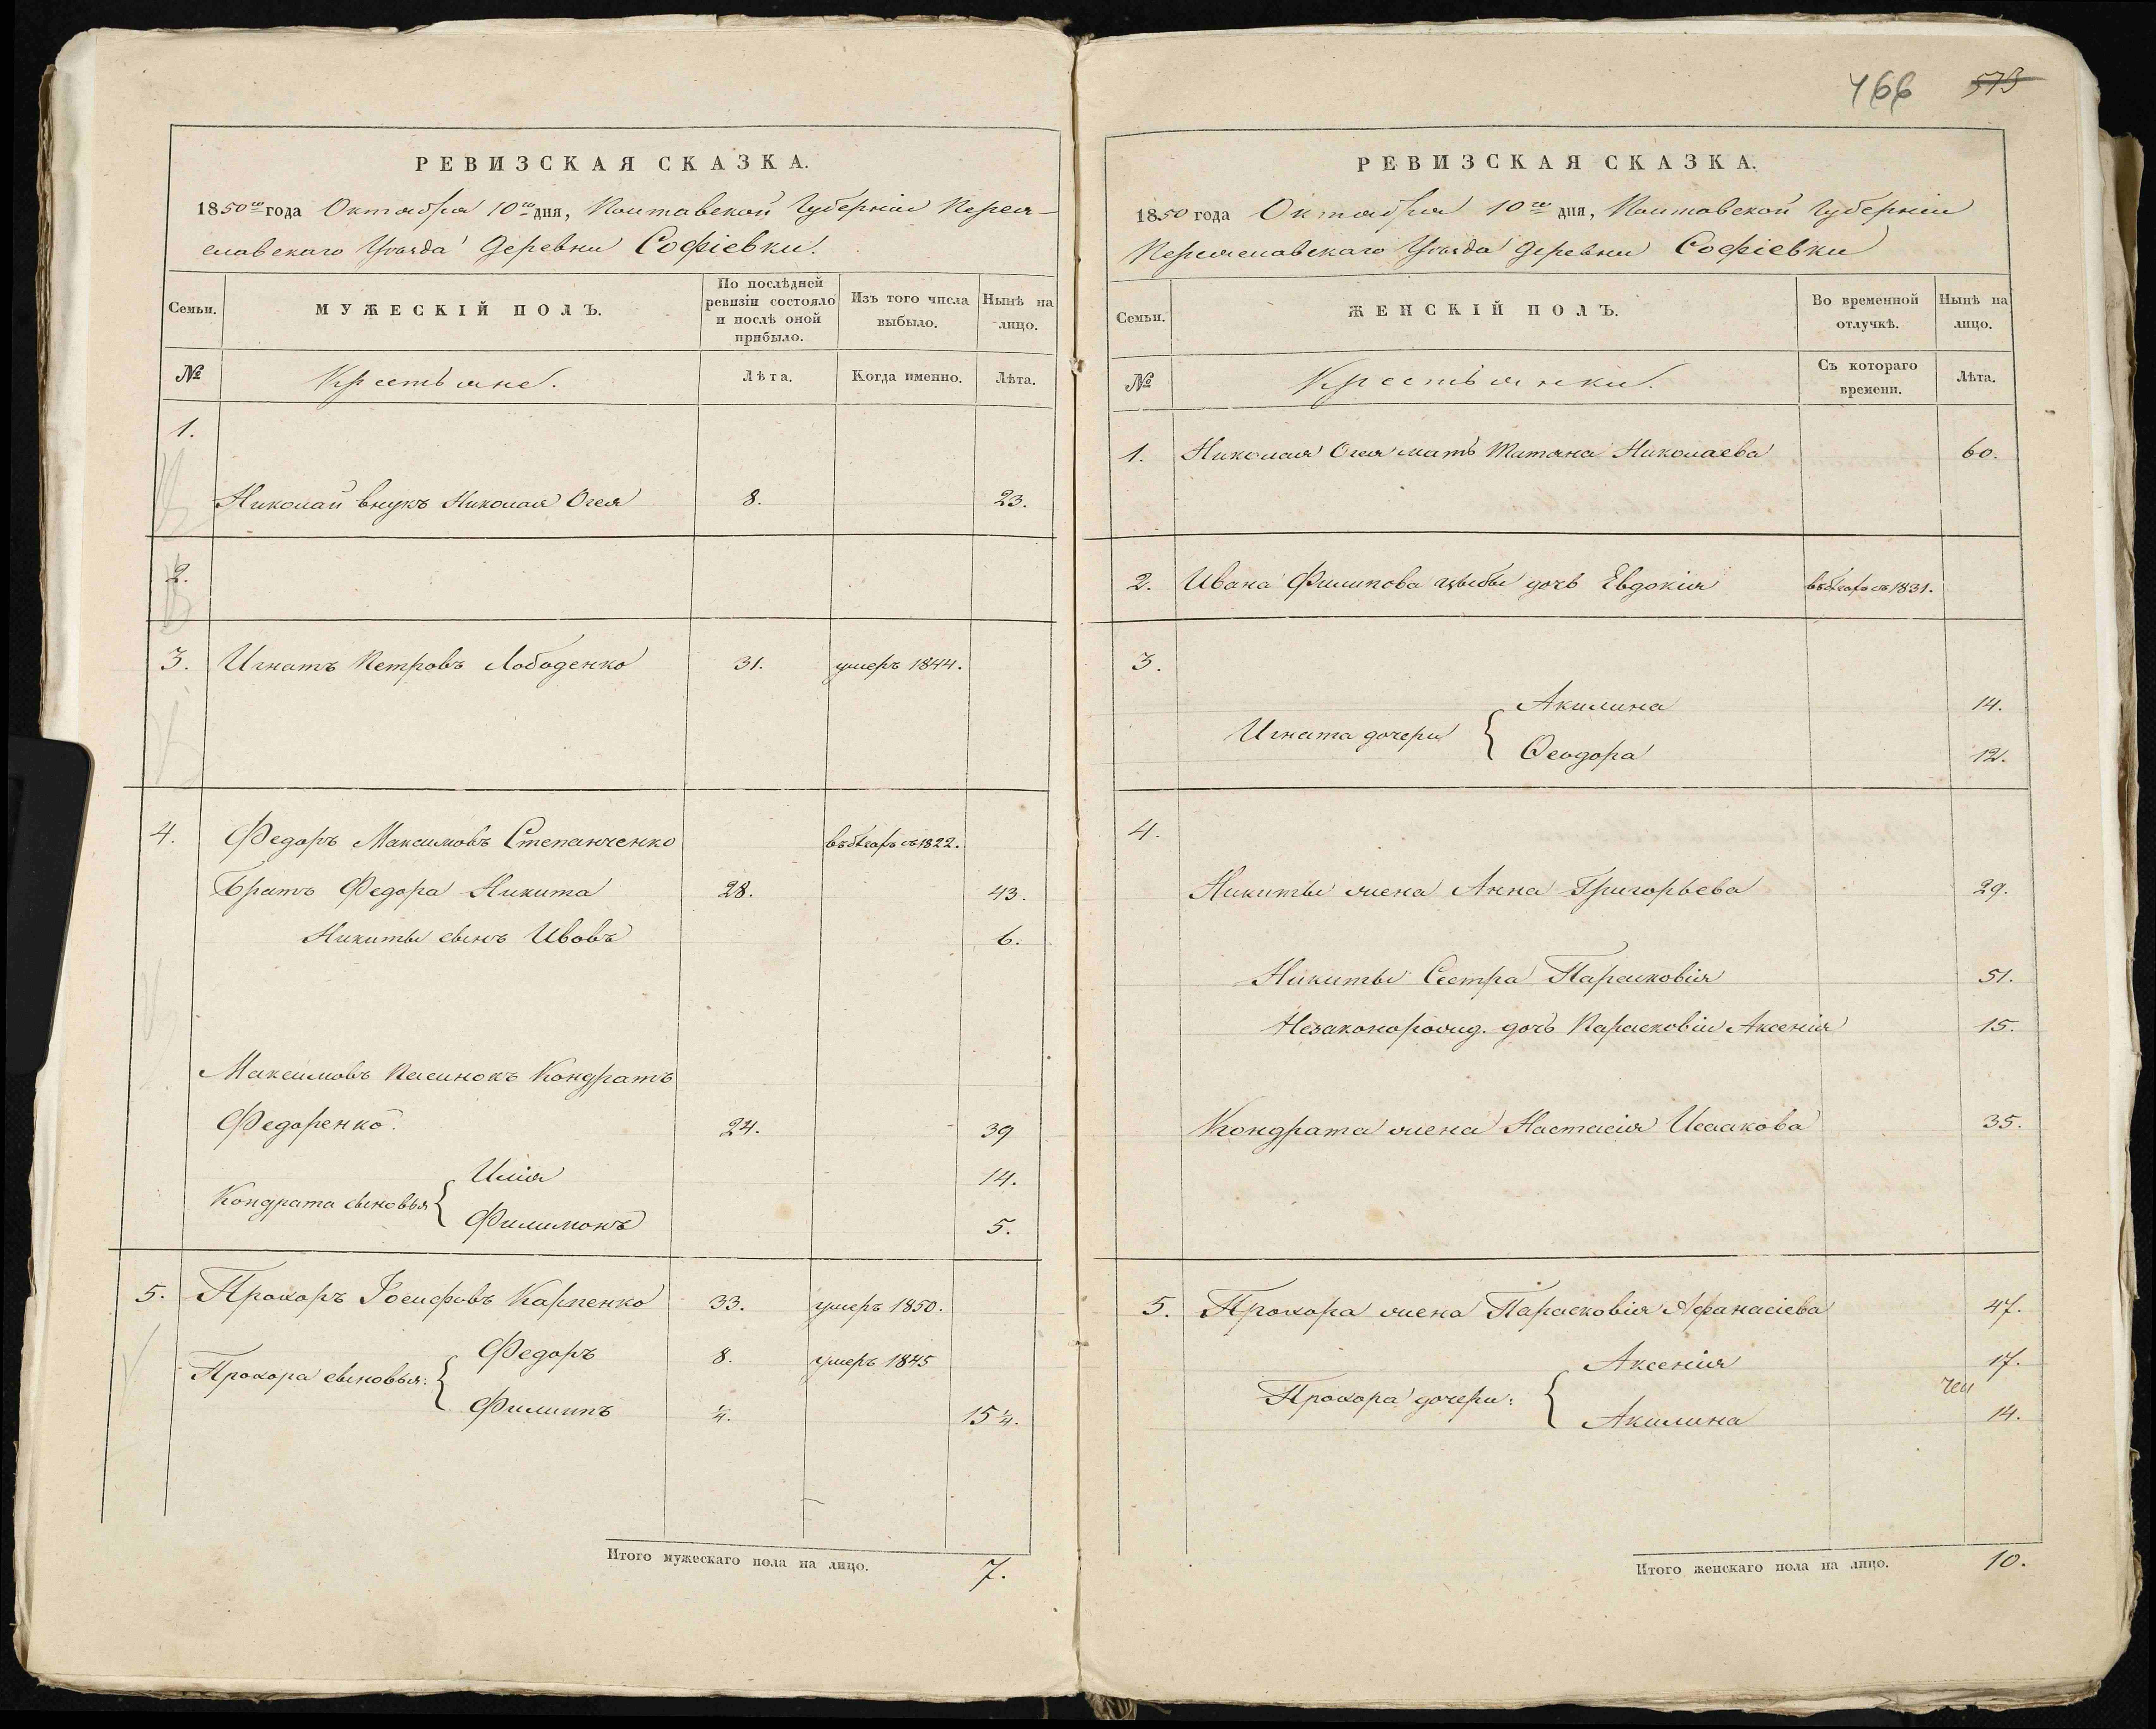 РЕВИЗСКАЯ СКАЗКА.
1850го года Октября 10го дня, Полтавской Губернiи Перея-
славскаго Уѣзда Деревни Софiевки.
Семьи.
МУЖЕСКIЙ ПОЛЪ.
По послѣдней ревизiи состояло и послѣ оной прибыло.
Изъ того числа выбыло.
Нынѣ на лицо.
№
Крестьяне.
Лѣта.
Когда именно.
Лѣта.
1.
Николай внукъ Николая Огея 8. 23.
2.
3. Игнатъ Петровъ Лободенко 31. умеръ 1844.
4. Федоръ Максимовъ Степанченко въ бѣгахъ съ 1822.
Братъ Федора Никита 28. 43.
Никиты сынъ Ивовъ 6.
Максимовъ пасинокъ Кондратъ
Федоренко. 24. 39
Кондрата сыновья
Илiя 14.
Филимонъ 5.
5. Прохоръ Іосифовъ Карпенко 33. умеръ 1850.
Прохора сыновья:
Федоръ 8. умеръ 1845
Филипъ ¼. 15¼.
Итого мужескаго пола на лицо. 7.
466 573
РЕВИЗСКАЯ СКАЗКА.
1850 года Октября 10го дня, Полтавской Губернiи
Переяславскаго Уѣзда Деревни Софiевки
Семьи.
ЖЕНСКIЙ ПОЛЪ.
Во временной отлучкѣ.
Нынѣ на лицо.
№
Крестьянки.
Съ котораго времени.
Лѣта.
1. Николая Огея мать Татяна Николаева 60.
2. Ивана Филипова Цыбы дочь Евдокiя въ бѣгахъ съ 1831.
3.
Игната дочери
Акилина 14.
Ѳеодора 12.
4.
Никиты жена Анна Григорьева 29.
Никиты Сестра Парасковiя 51.
Незаконорожд. дочь Парасковiи Аксенiя 15.
Кондрата жена Настасiя Исаакова 35.
5. Прохора жена Парасковiя Афанасiева 47.
Прохора дочери:
Аксенiя 17.
Акилина 14.
Итого женскаго пола на лицо. 10.